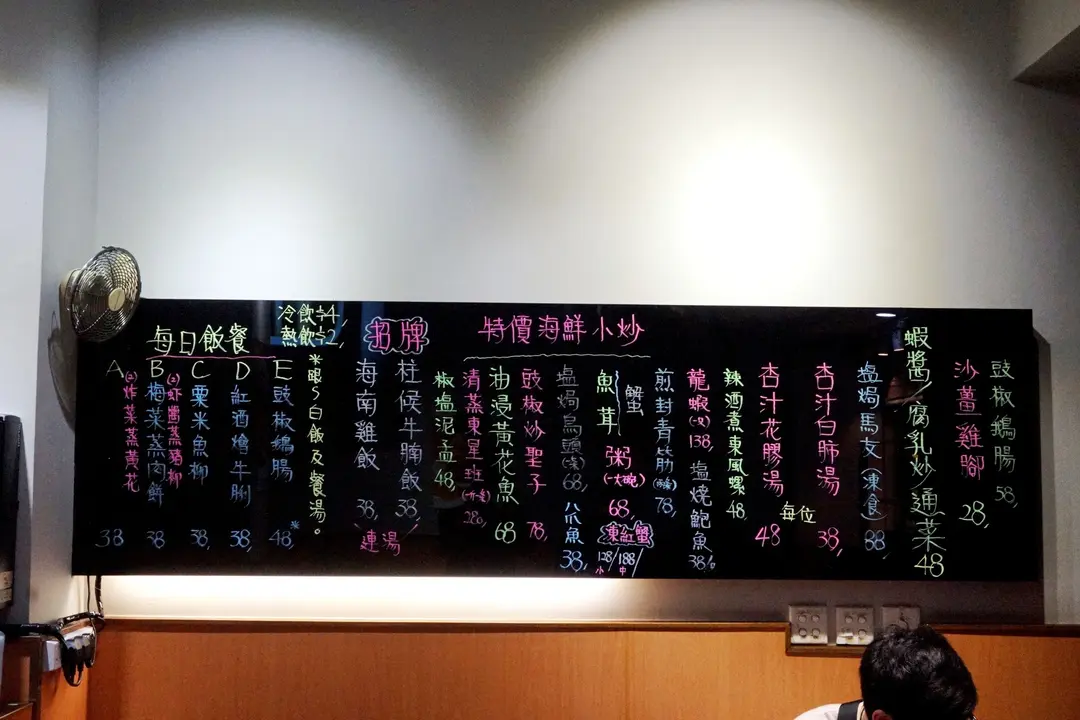 每日飯餐
冷飲+4,
熱飲+2,
A (2)炸菜蒸黃花 38
B 梅菜蒸肉餅 38,
(2)虾醬蒸豬柳
C 粟米魚柳 38,
D 紅酒燴牛脷 38,
E 豉椒鵝腸 48,
*跟以白飯及餐湯。
招牌
海南雞飯 38,
柱侯牛腩飯 38,
連湯
特價海鮮小炒
椒塩泥孟 48,
清蒸東星班 280,
油浸黃花魚 68
豉椒炒聖子 78,
塩焗烏頭 68,
八爪魚 38,
魚茸
蟹
粥(一大碗) 68,
凍紅蟹
128/ 188/
小 中
煎封青筋 78,
龍蝦(一只) 138,
塩燒鮑魚 38/
辣酒煮東風螺 48,
杏汁花膠湯 48
每位
杏汁白肺湯 38,
塩焗馬友(凍食) 88,
蝦醬/腐乳炒通菜 48
沙薑雞腳 28,
豉椒鵝腸 58,